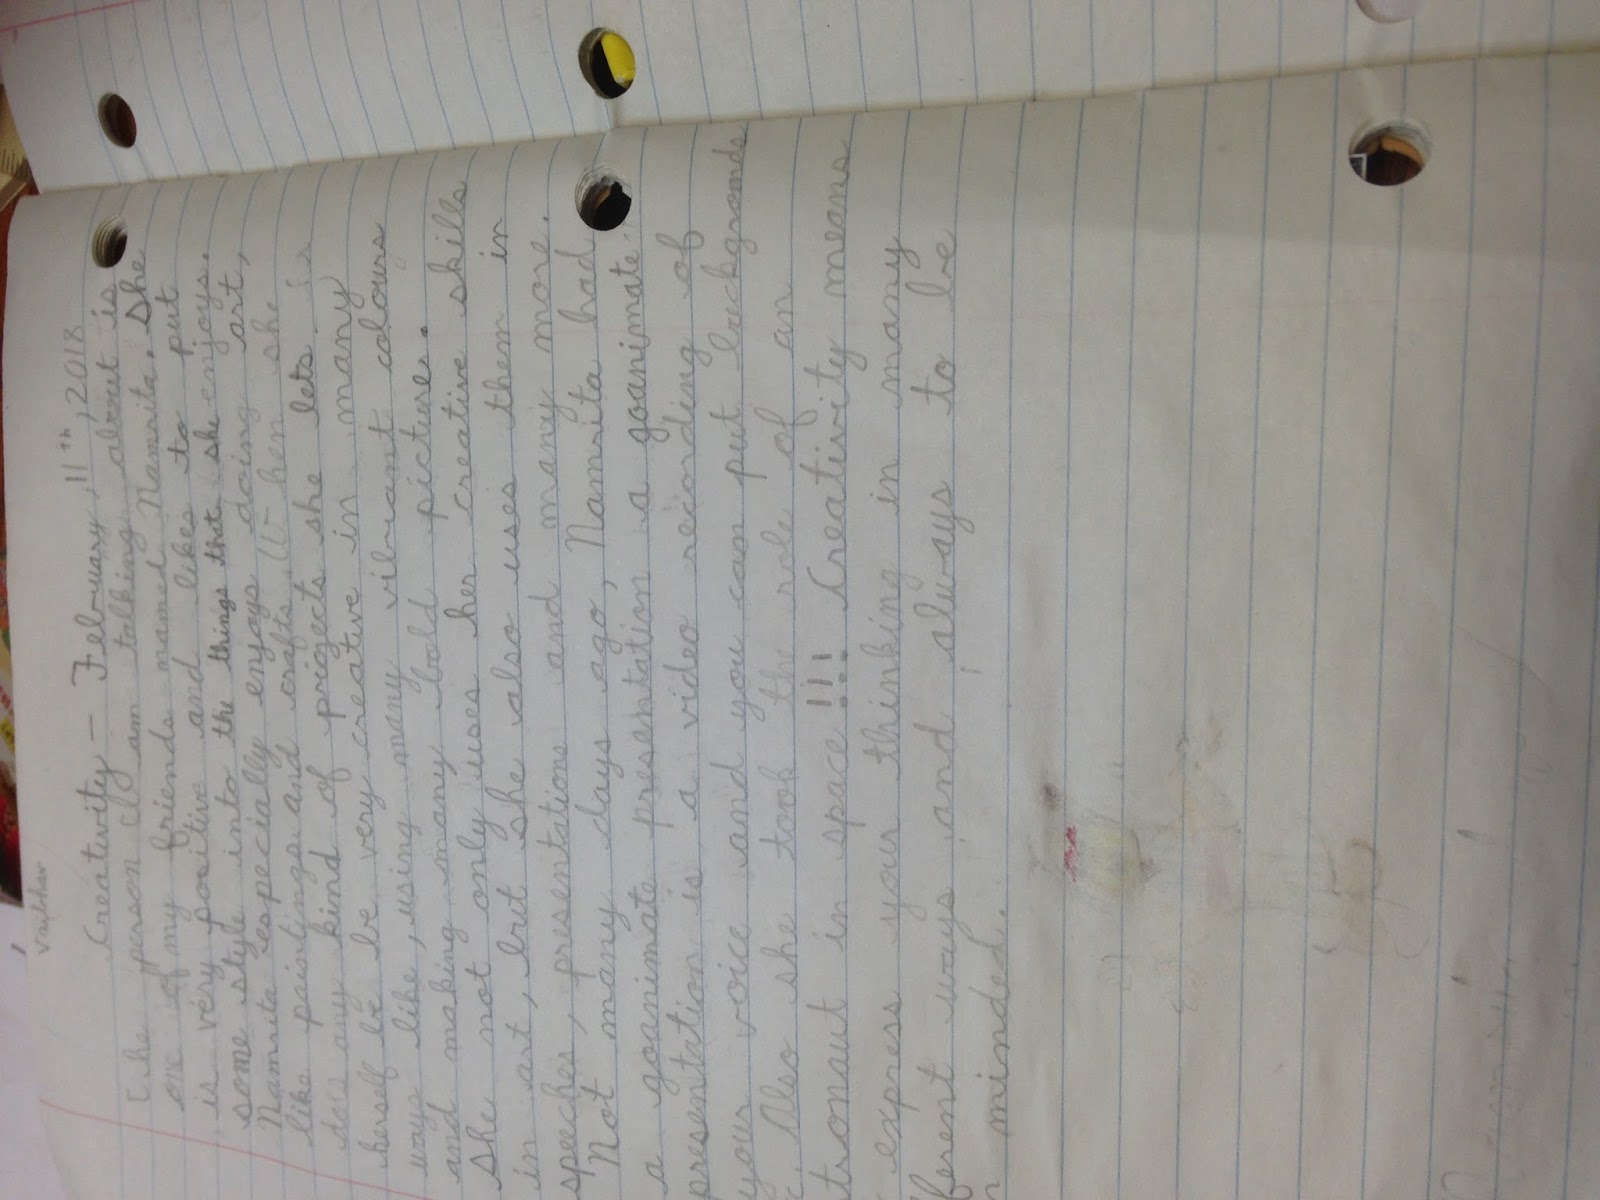 Vaibhav
Creativity - February, 11th, 2018
The person I am talking about is
one of my friends named Namrita. She
is very positive and likes to put
some style into the things that she enjoys.
Namrita especially enjoys doing art,
like paintings and crafts. When she
does any kind of projects she lets
herself be be very creative in many
ways like, using many vibrant colours
and making many bold pictures.
She not only uses her creative skills
in art, but she also uses them in
speeches, presentations and many more.
Not many days ago, Namrita had
a goanimate presentation a goanimate
presentation is a video recording of
your voice and you can put backgronds
Also she took the role of an
tronaut in space!!! Creativity means
express your thinking in many
ferent ways and always to be
n minded.